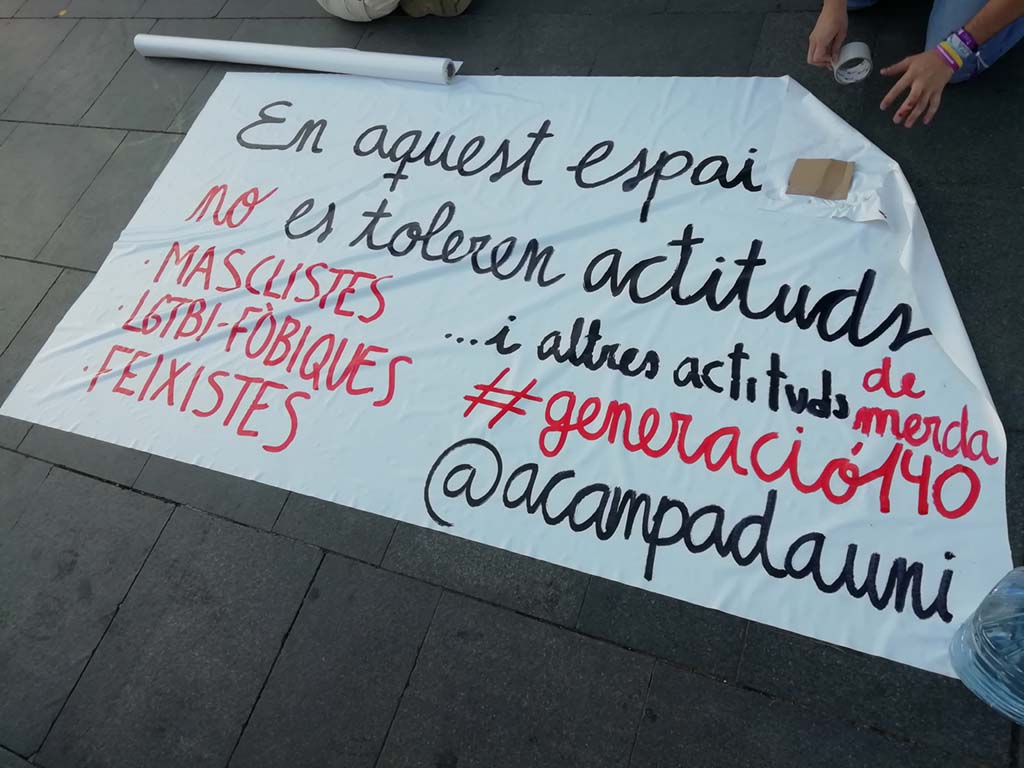 En aquest espai
no es toleren actituds
· MASCLISTES
· LGTBI-FÒBIQUES
· FEIXISTES
...i altres actituds de merda
#generació140
@acampadauni